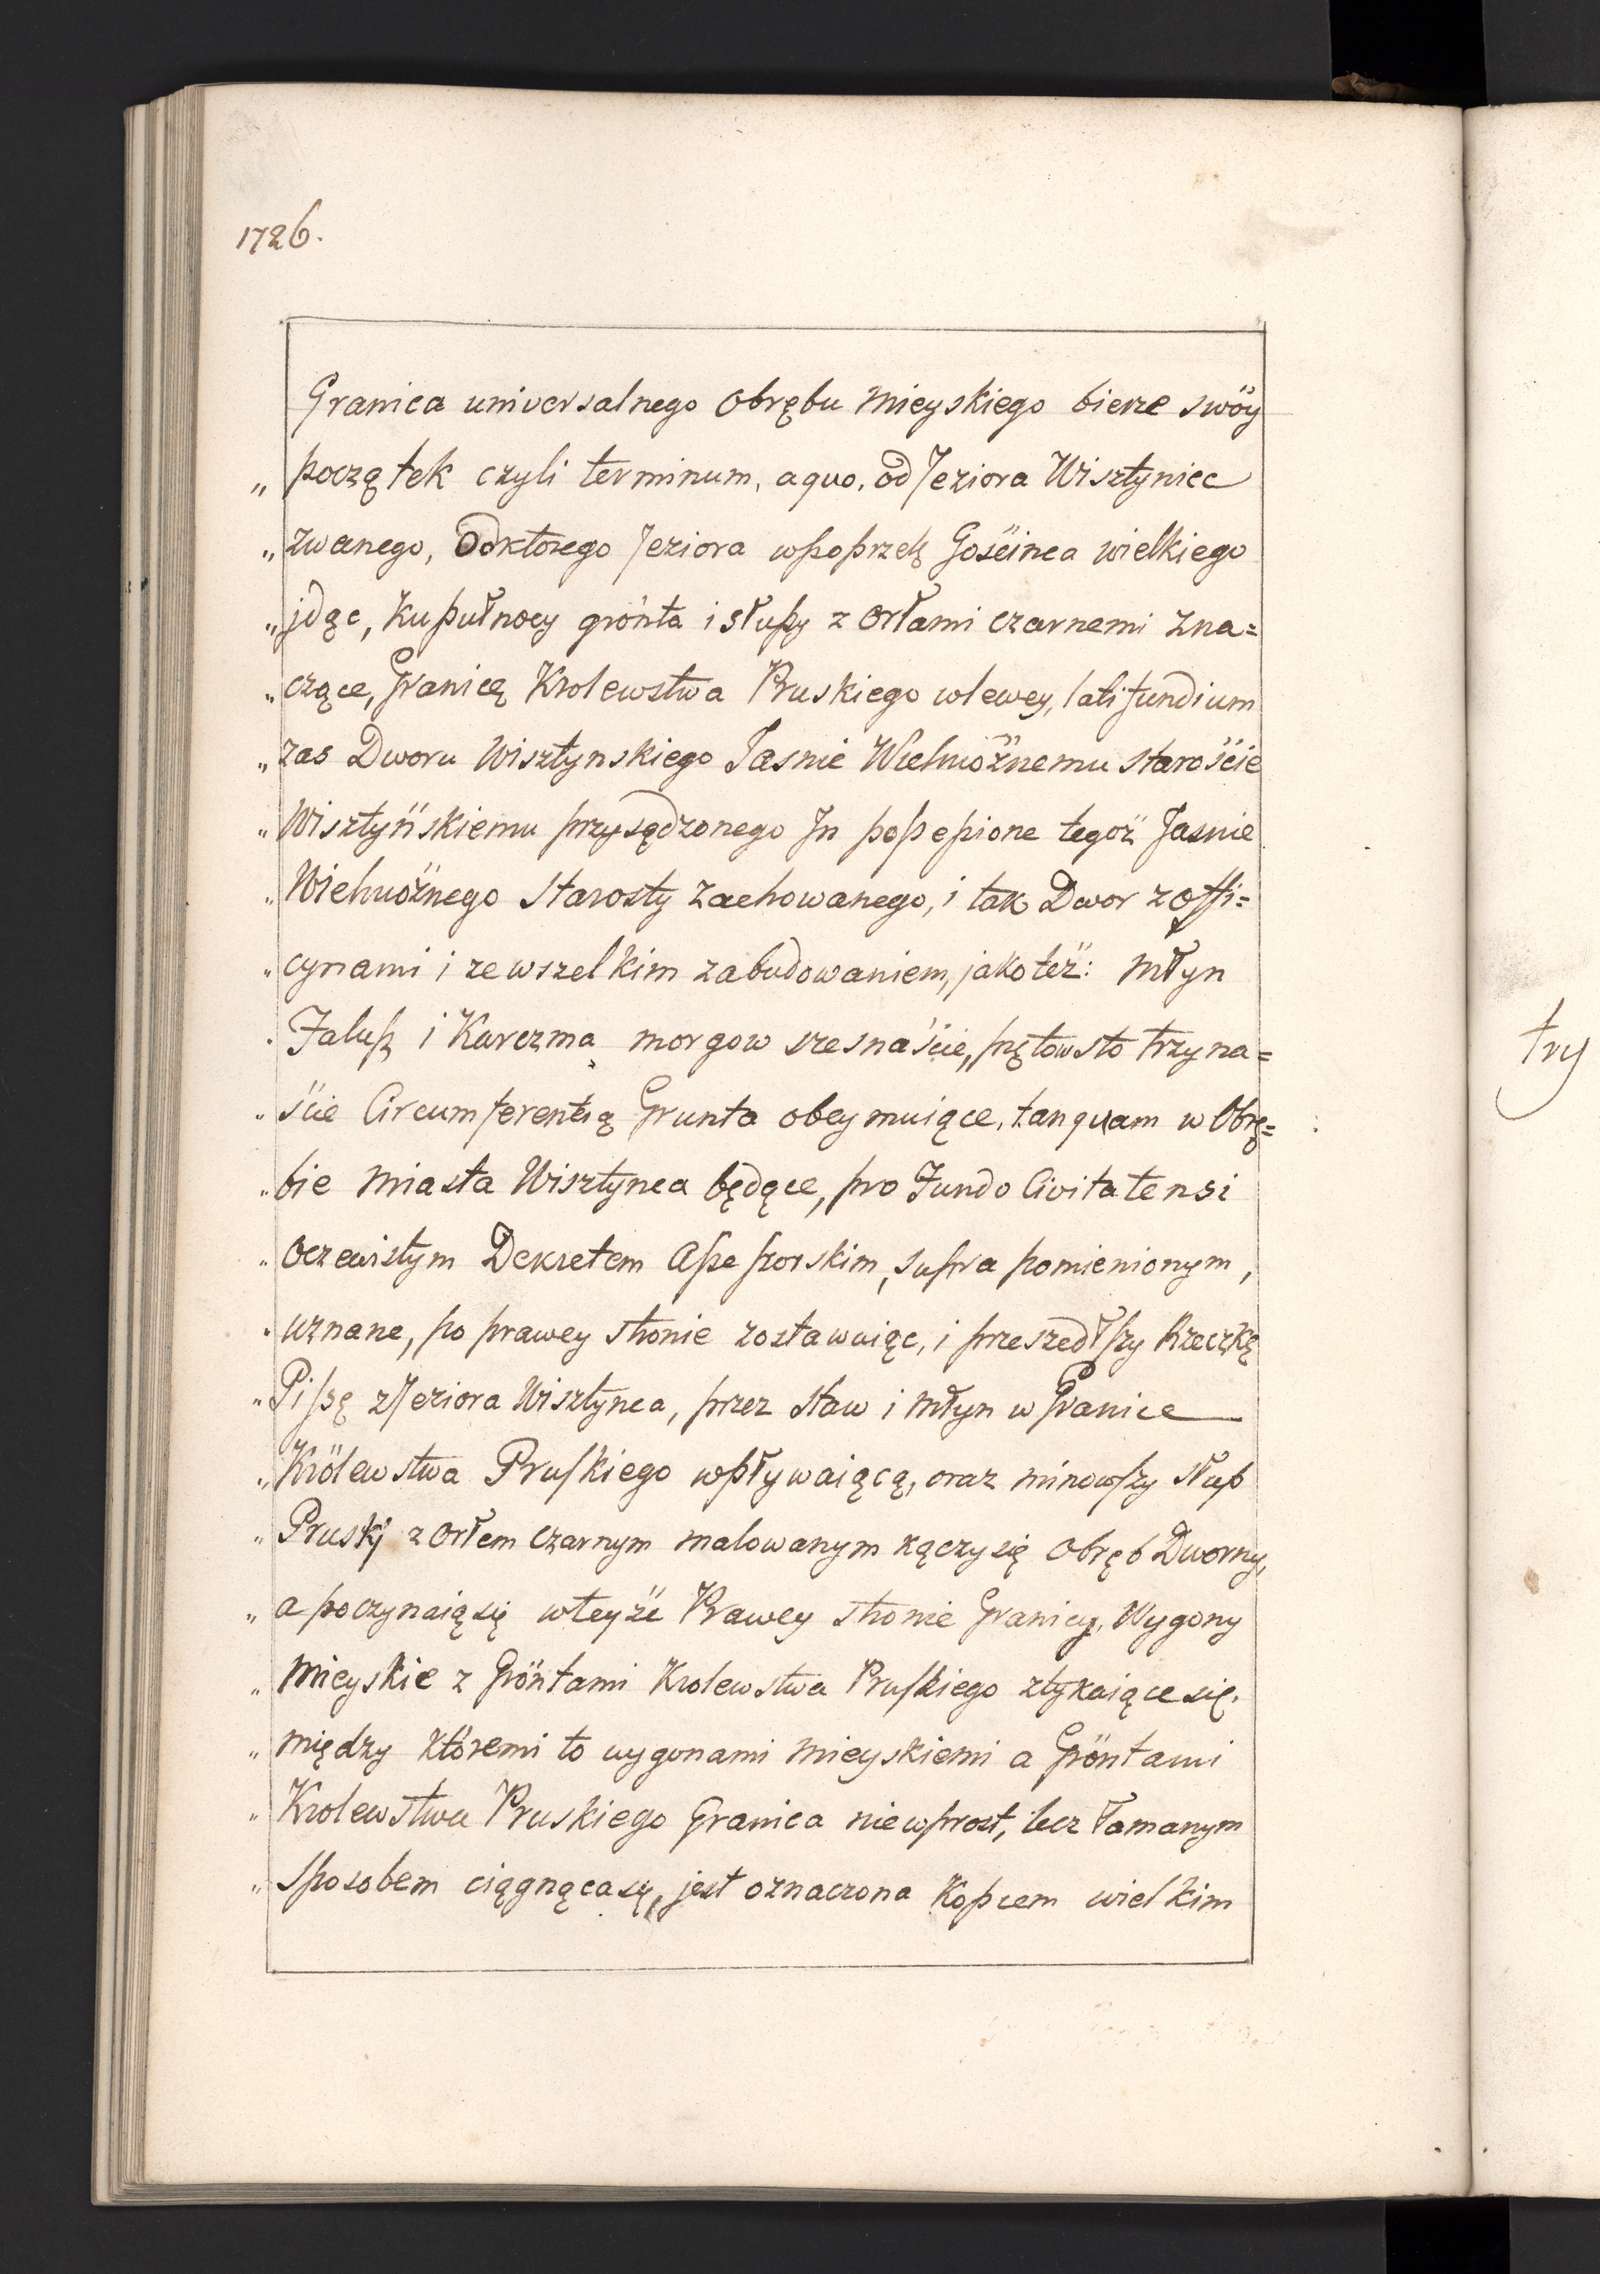 1726.
Granica universalnego Obrębu Mieyskiego bierze swöy
„ początek czyli terminum, a quo, od Jeziora Wisztyniec
„ zwanego, Odktorego Jeziora wpoprzek Gościnca wielkiego
„ jdąc, Ku pułnocy grönta i słupy z Orłami czarnemi zna=
„ czące, Granicę Krolewstwa Pruskiego wlewey, latifundium
„ zas Dworu Wisztynskiego Jasnie Wielmożnemu Starościе
„ Wisztyńskiemu przysądzonego Jn possessione tegoż Jasnie
„ Wielmożnego Starosty zachowanego, i tak Dwor z offi=
„ cynami i ze wszelkim zabudowaniem, jako też: Młyn
„ i Karczma morgow szesnaście, prętow sto trzyna=
„ ście Circumferentią Grunta obeymuiące, tanquam w Obrę=
„ bie Miasta Wisztynca będące, pro Fundo Civitatensi
„ Oczewistym Dekretem Assessorskim, supra pomienionym,
„ uznane, po prawey stronie zostawuiąc, i przeszedłszy Rzeczkę
„ Pissę z Jeziora Wisztynca, przez staw i Młyn w Granice
„ Krölewstwa Pruskiego wpływaiącą, oraz minowszy słup
„ Pruskj z Orłem czarnym malowanym kączy się Obręb Dworny,
„ a poczynaią się wteyże Prawey stronie Granicy, Wygony
„ Mieyskie z Gröntami Krolewstwa Pruskiego ztykaiące się.
„ między któremi to wygonami mieyskiemi a Gröntami
„ Krolewstwa Pruskiego Granica niewprost, lecz łamanym
„ sposobem ciągnąca sę, jest oznaczona Kopcem wielkim
try